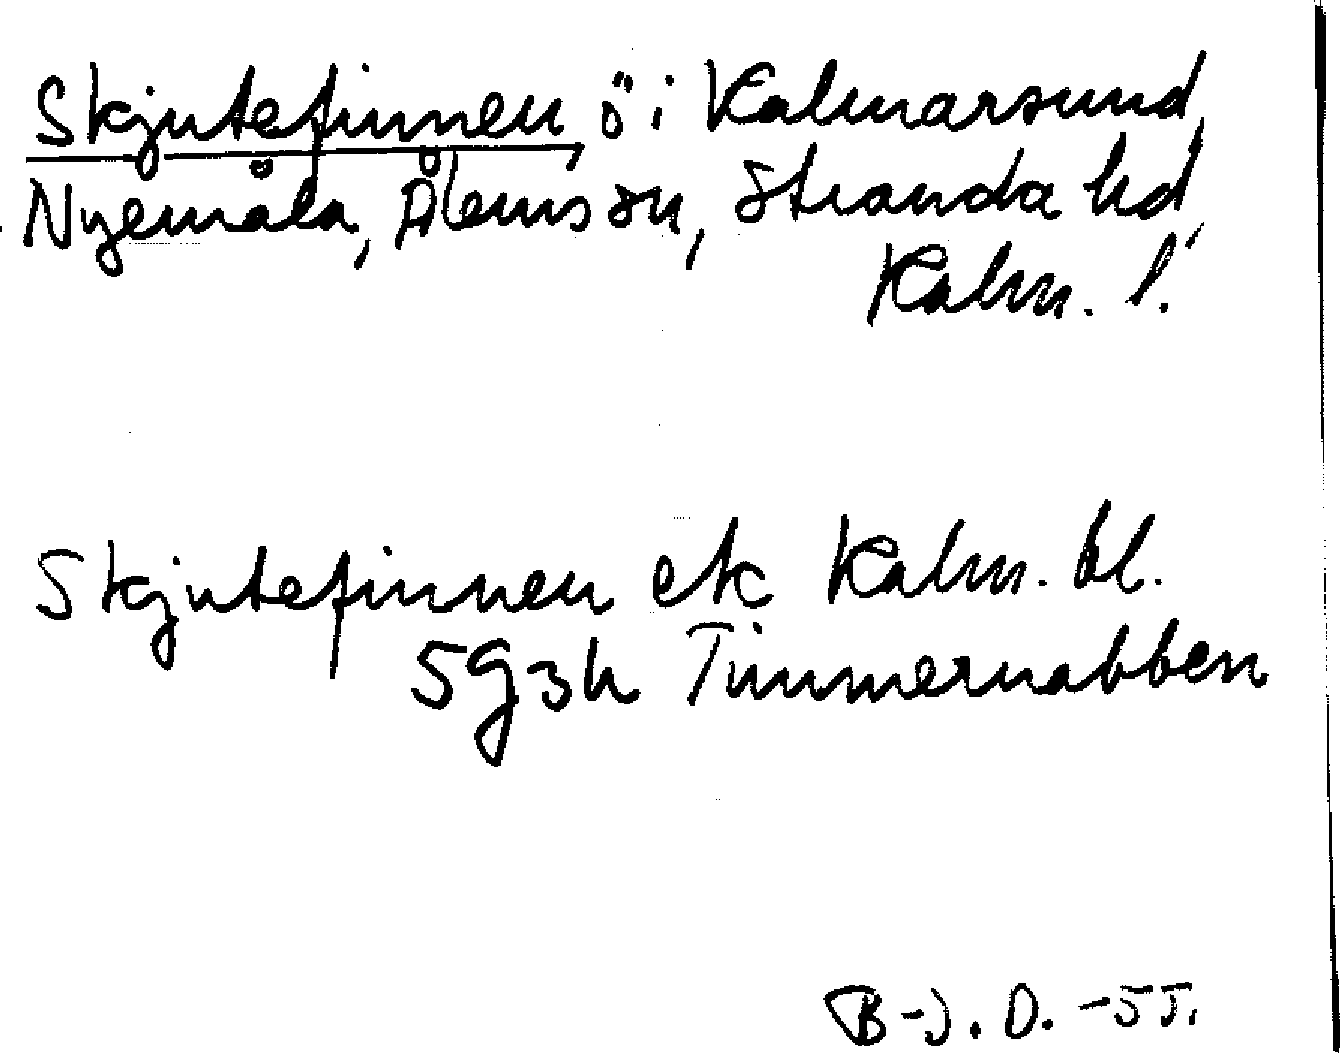 Skjutefinnen, ö i Kalmarsund,
Nyemåla, Ålems sn, Stranda hd,
Kalm. l.
Skjutefinnen ek Kalm. bl.
5g3h Timmernabben
B-J. O. -55.